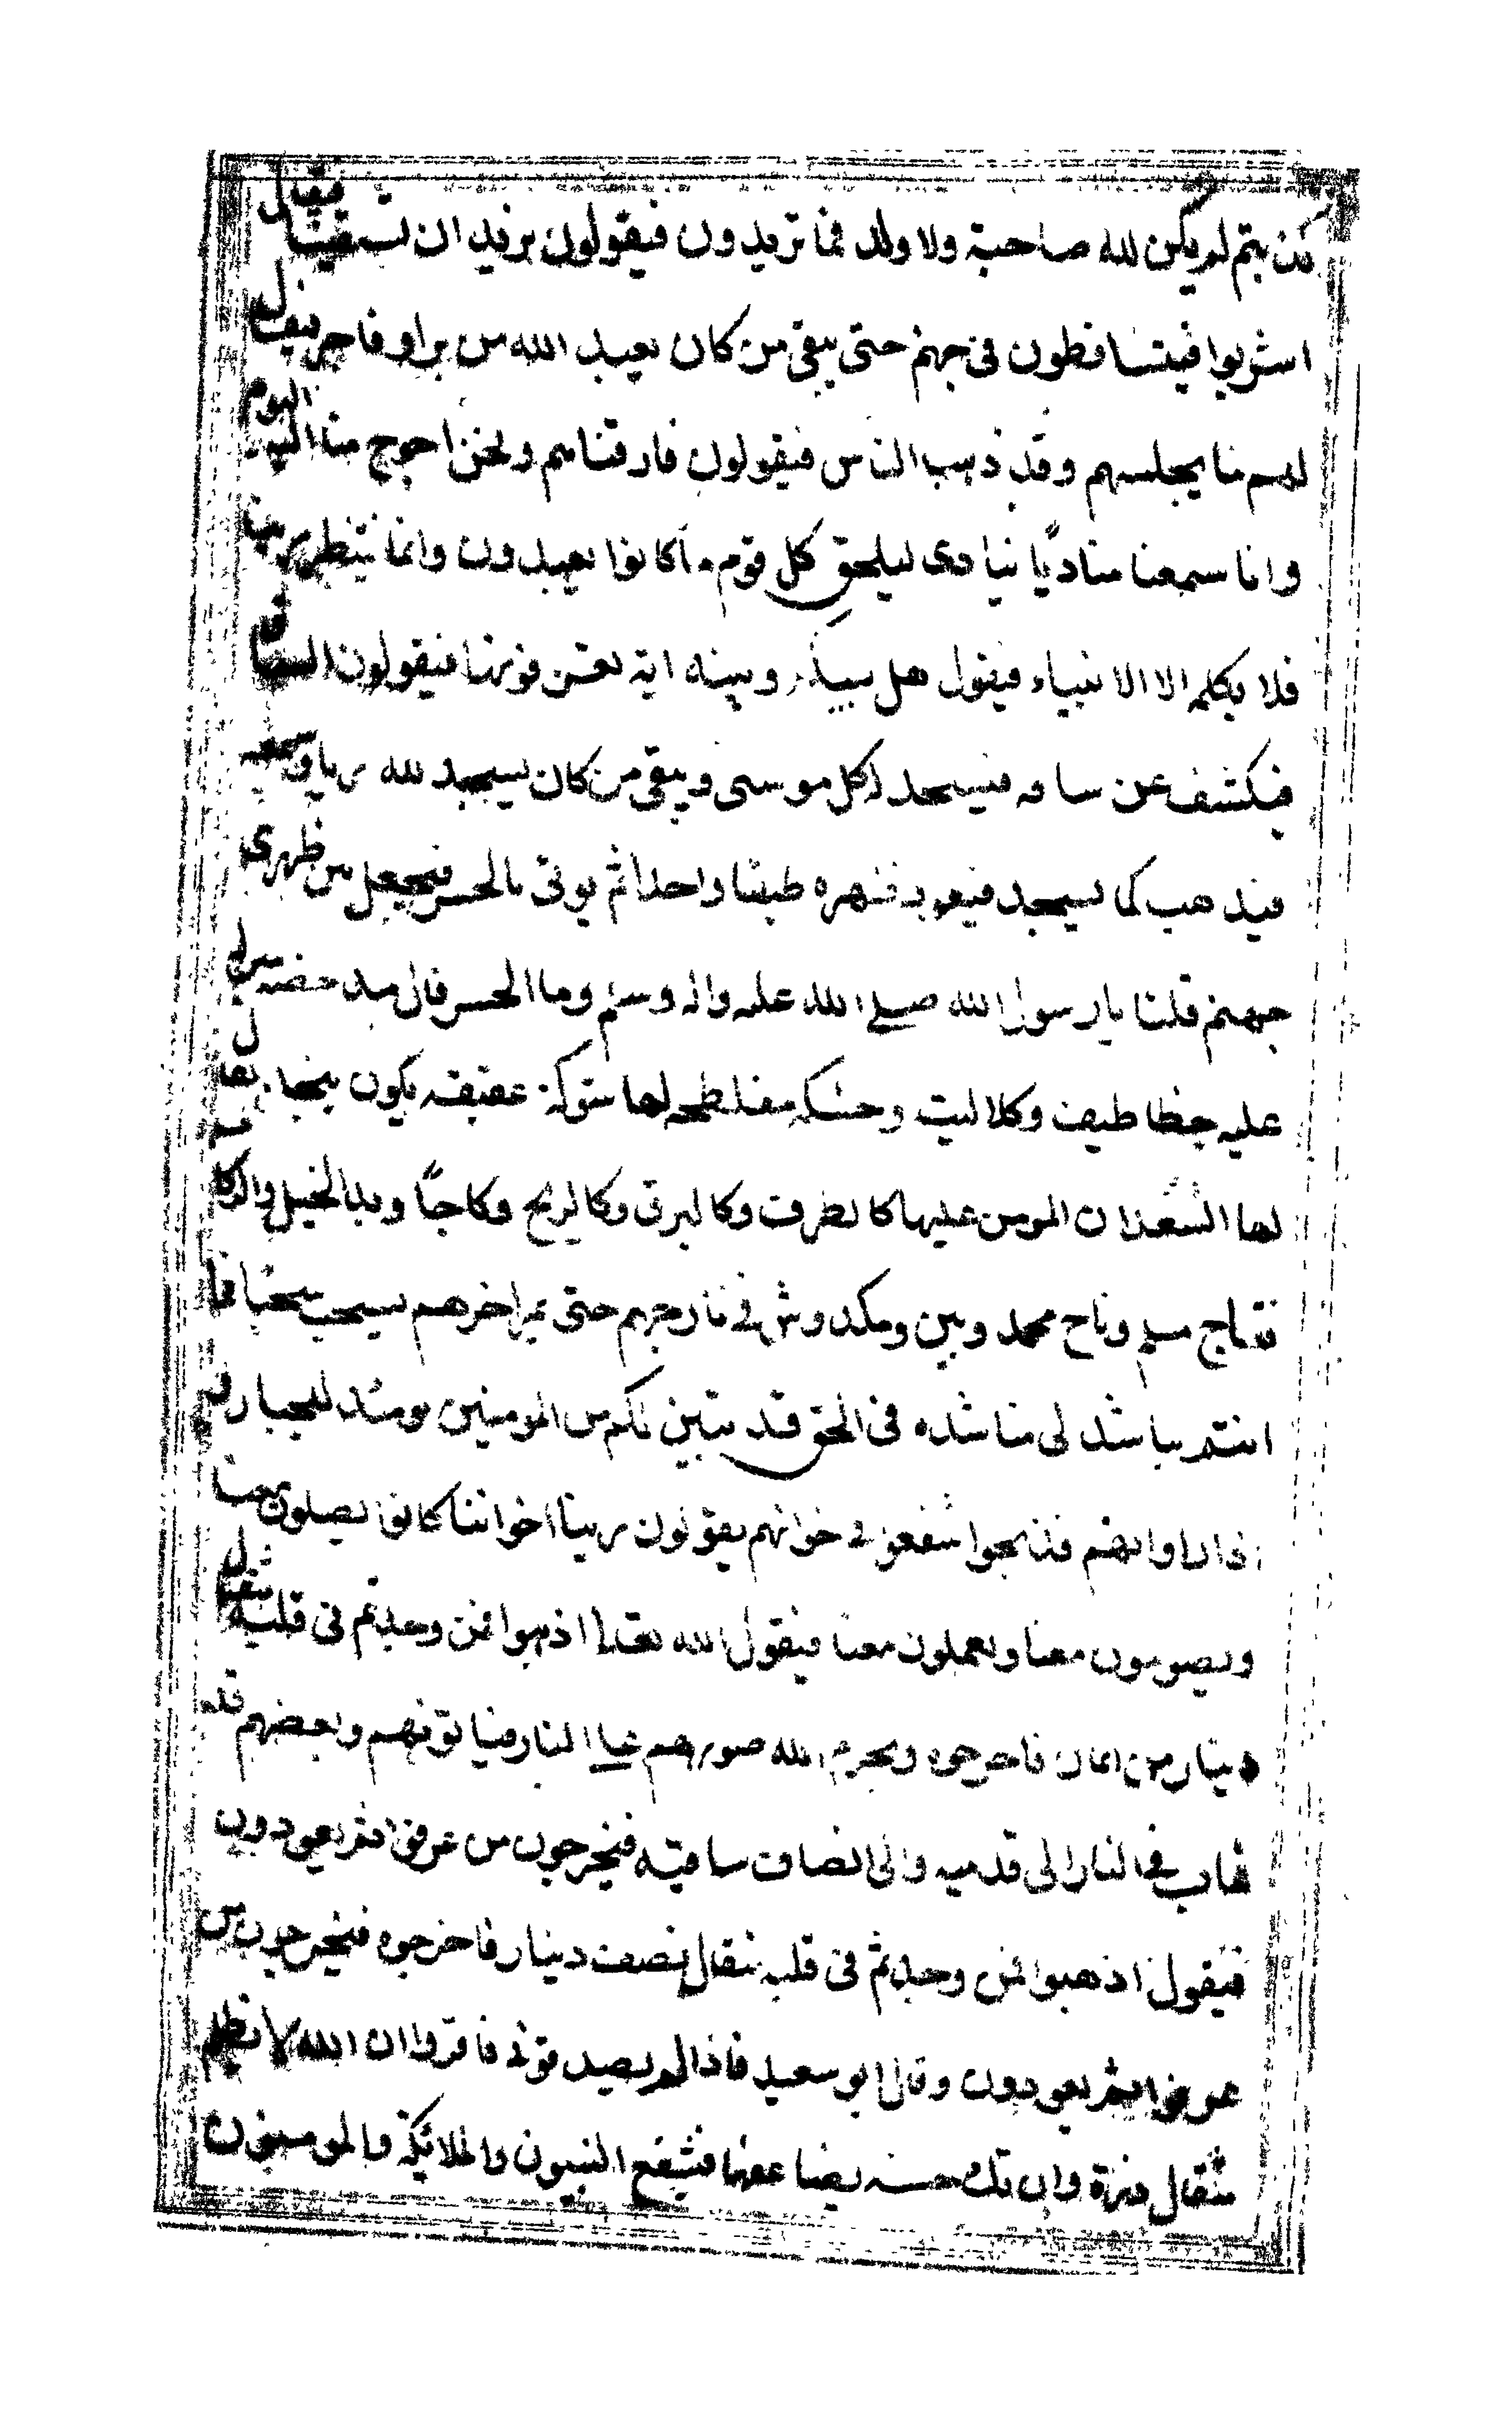 كذبتم لم يكن لله صاحبة ولا ولد فما تريدون فيقولون نريد ان تسقينا فيقال
اشربوا فيتساقطون في جهنم حتى يبقى من كان يعبد الله من براو فاجر فيقال
لهم ما يجلسهم وقد ذهب الناس فيقولون فارقناهم ونحن احوج منا اليه اليوم
وانا سمعنا مناديًا ينادى ليلحق كل قوم ما كانوا يعبدون وانما ننتظر ربنا
فلا يكلمه الا الانبياء فيقول هل بينكم وبينه اية تعرفونها فيقولون الساق
فيكشف عن ساقه فيسجد له كل موسى ويبقى من كان يسجد لله رياو سمعه
فيذهب كما يسجد فيعود ظهره طبقا واحدا ثم يوتى بالجسر فيجعل بين ظهري
جهنم قلنا يارسول الله صلى الله عليه واله وسلم وما الجسر قال مدحضه مزلة
عليه خطاطيف وكلاليب وحسكه مفلطحه لها شوكة عقيفه يكون بنجد يقال
لها السعدان المومن عليها كالطرف وكالبرق وكالريح وكاجاويد الخيل والركاب
فناج مسلم وناج محمد وبين ومكدوش في نار جهنم حتى يمر اخرهم يسحب سحبا فما
انتم باشد لى مناشده في الحق قد تبين لكم من المومنين يومئذ للجبار
اذا راوا انهم قد نجوا شفعوا في خوانهم يقولون ربنا اخواننا كانوا يصلون معنا
ويصومون معنا ويعملون معنا فيقول الله تعالى اذهبوا فمن وجدتم في قلبه مثقال
دينار من ايمان فاخرجوه ويحرم الله صورهم على النار فياتونهم وبعضهم قد
غاب في النار الى قدميه والى انصاف ساقيه فيخرجون من عرفوا ثم يعودون
فيقول اذهبوا فمن وجدتم في قلبه مثقال نصف دينار فاخرجوه فيخرجون من
عرفوا ثم يعودون وقال ابو سعيد فاذا لم يصدقونى فاقروا ان الله لا يظلم
مثقال ذرة وان تك حسنه يضاعفها فيشفع النبيون والملائكة والمومنون